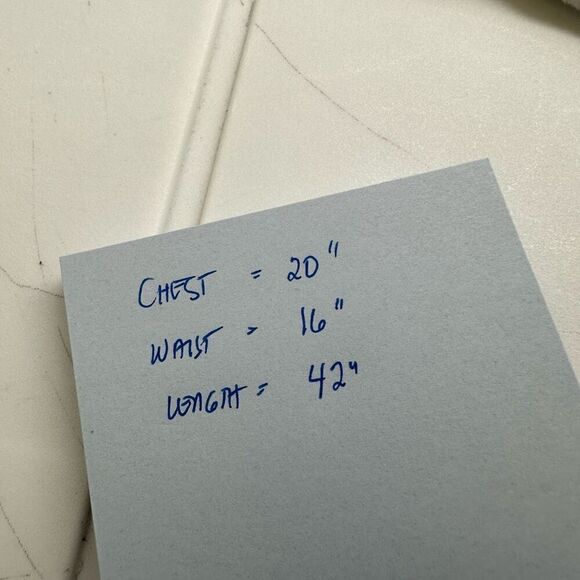 CHEST = 20"
WAIST = 16"
LENGTH = 42"